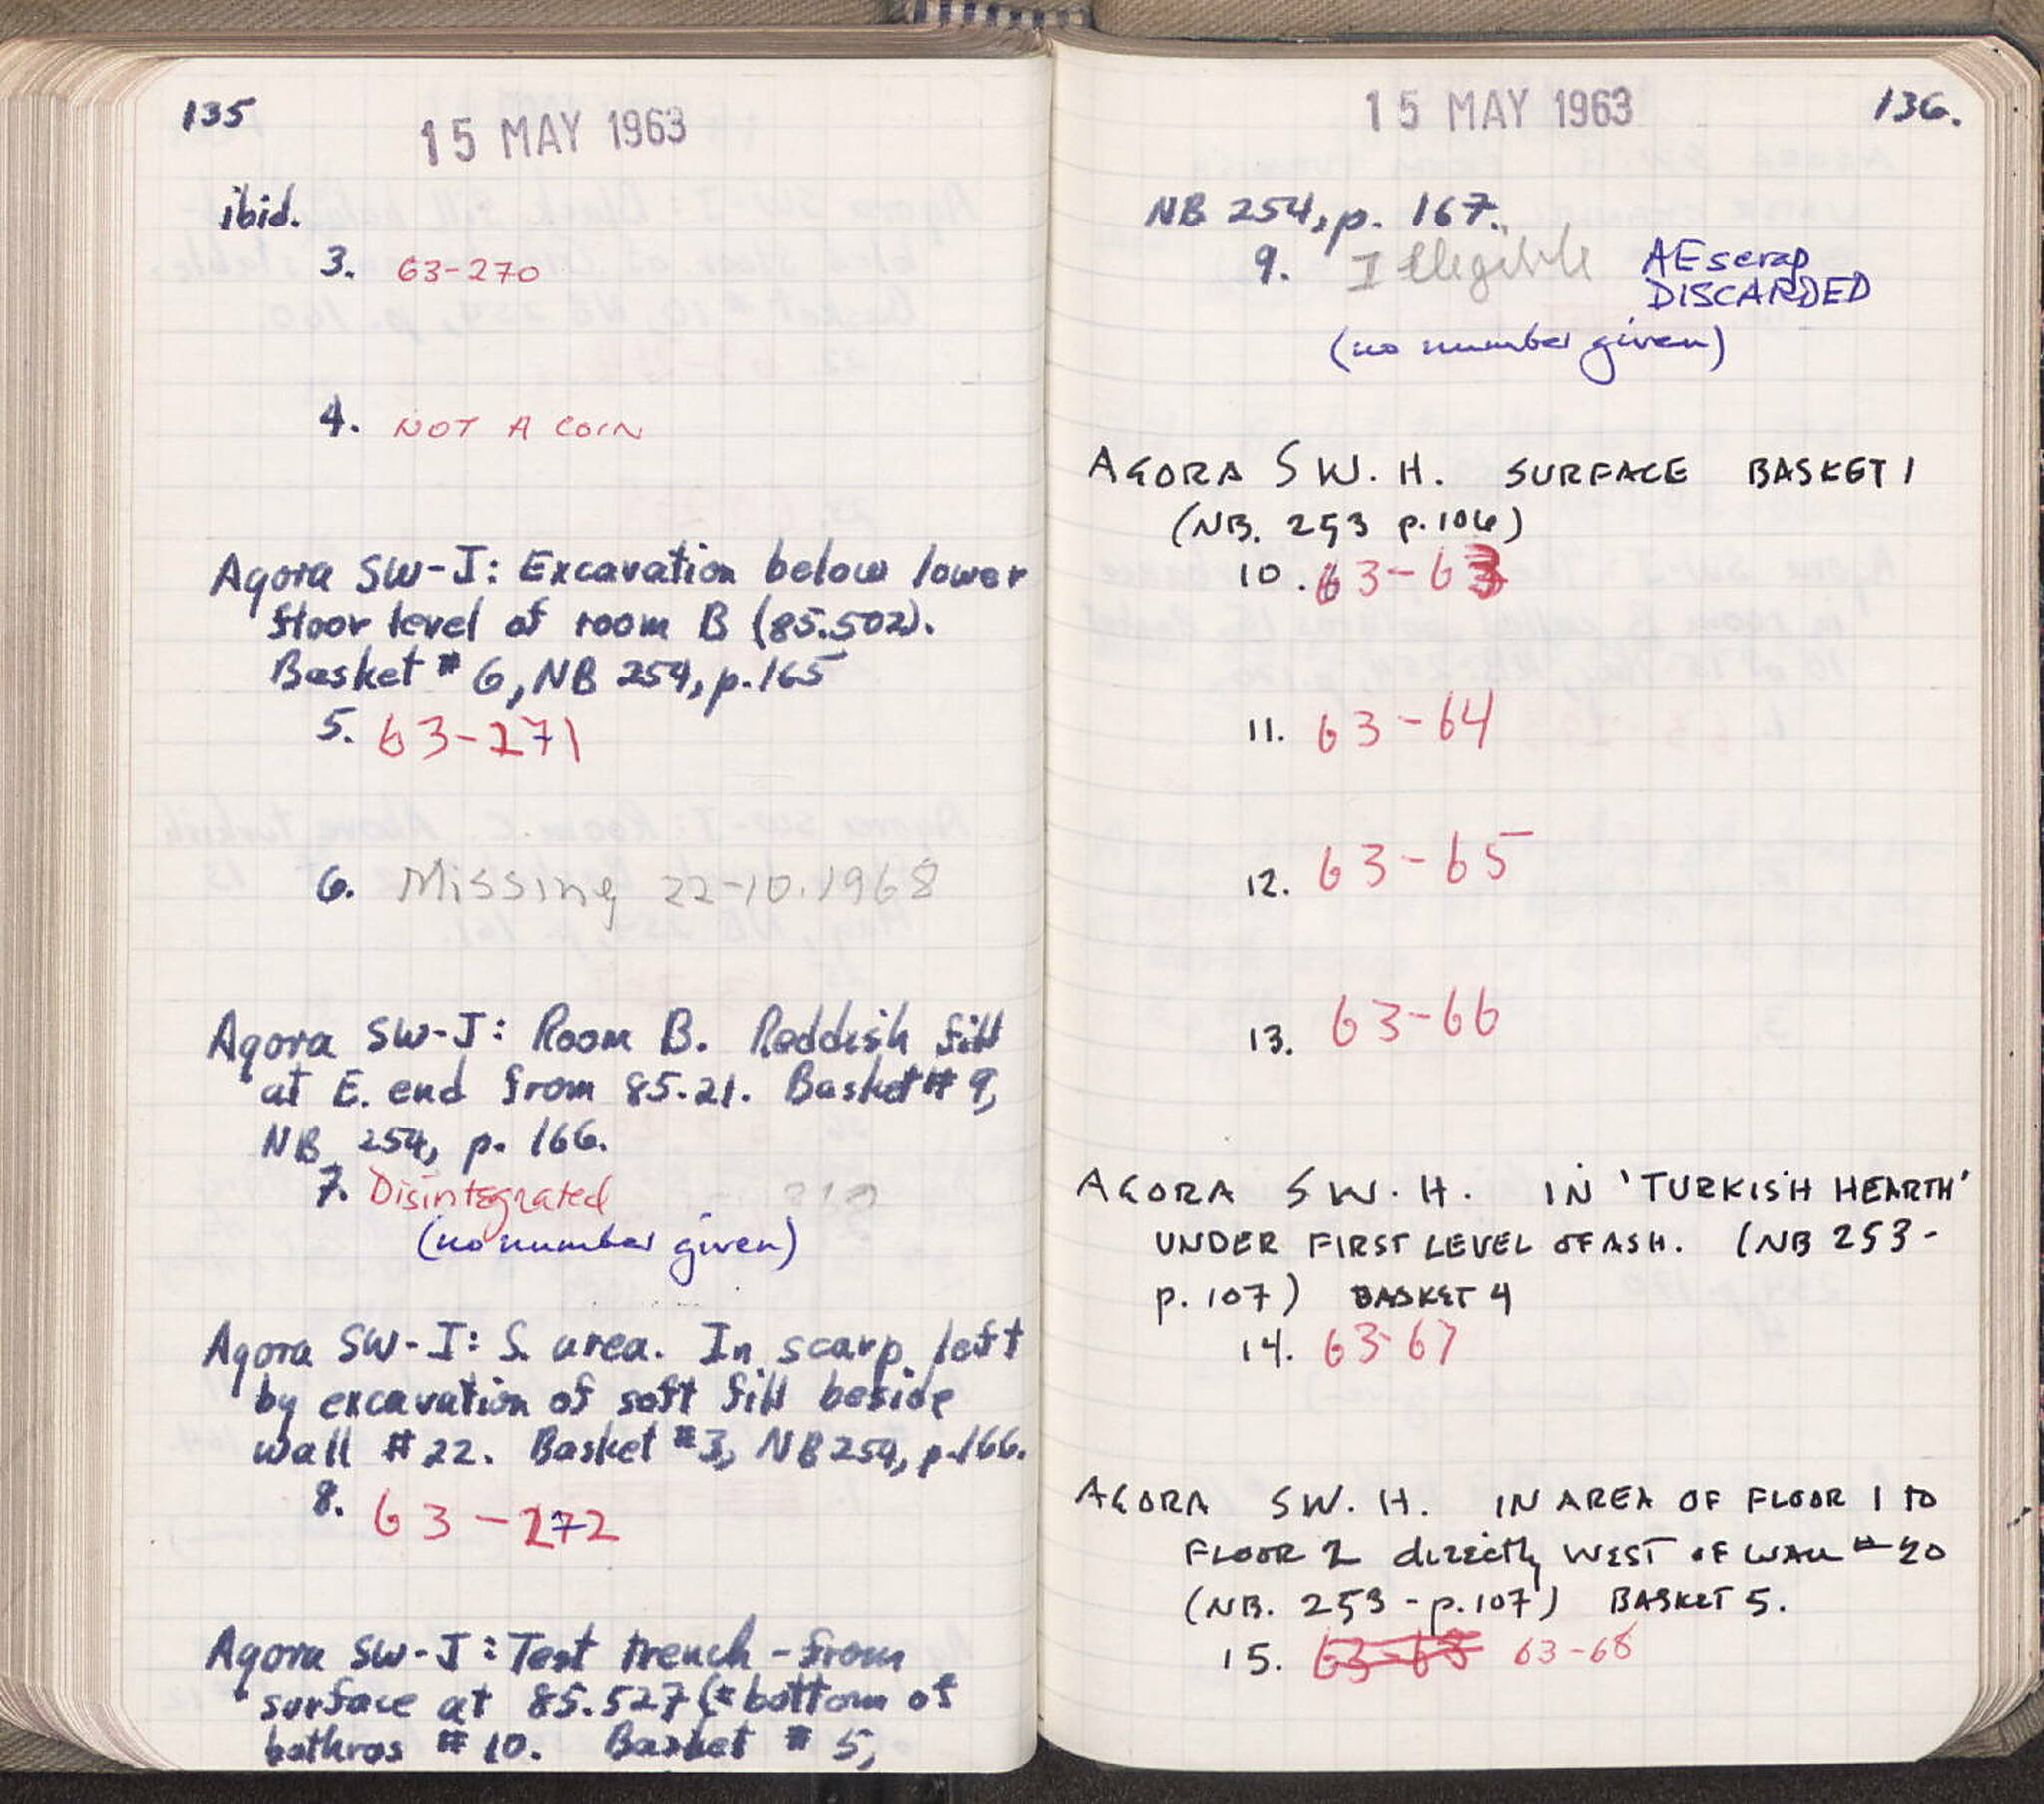 135
15 MAY 1963
ibid.
3. 63-270
4. NOT A COIN
Agora SW-J: Excavation below lower
floor level of room B (85.502).
Basket # 6, NB 254, p. 165
5. 63-271
6. Missing 22-10.1968
Agora SW-J: Room B. Reddish fill
at E. end from 85.21. Basket # 9,
NB 254, p. 166.
7. Disintegrated
(no number given)
Agora SW-J: S. area. In scarp left
by excavation of soft fill beside
wall # 22. Basket # 3, NB 254, p. 166.
8. 63-272
Agora SW-J: Test trench - from
surface at 85.527 (= bottom of
bothros # 10. Basket # 5,
15 MAY 1963
136.
NB 254, p. 167.
9. Illegible AE scrap
DISCARDED
(no number given)
AGORA SW. H. SURFACE BASKET 1
(NB. 253 p. 106)
10. 63-63
11. 63-64
12. 63-65
13. 63-66
AGORA SW. H. IN 'TURKISH HEARTH'
UNDER FIRST LEVEL OF ASH. (NB 253-
p. 107) BASKET 4
14. 63-67
AGORA SW. H. IN AREA OF FLOOR 1 TO
FLOOR 2 directly WEST OF WALL # 20
(NB. 253 - p. 107) BASKET 5.
15. 63-68 63-68